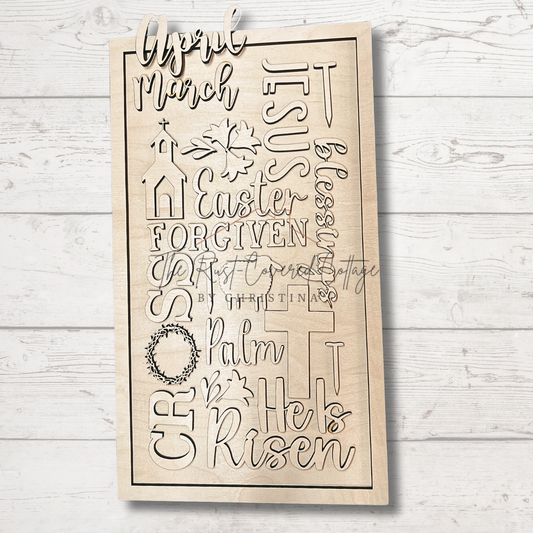 April
March
JESUS
blessings
Easter
FORGIVEN
CROSS
The Rust-Covered Cottage
BY CHRISTINA
Palm
He Is
Risen